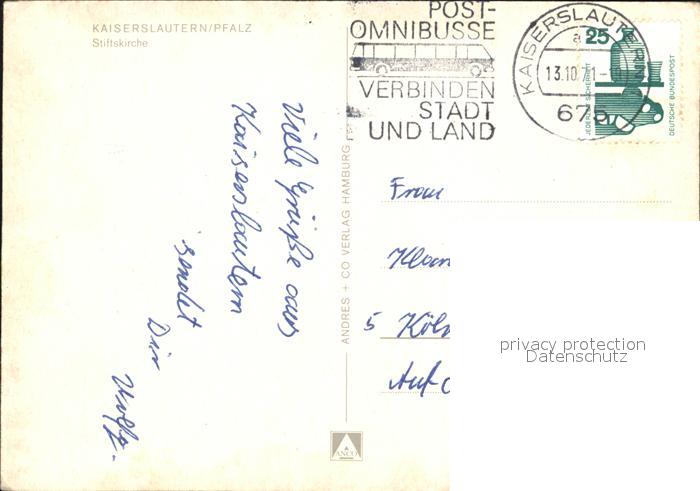 KAISERSLAUTERN/PFALZ
Stiftskirche
POST-
OMNIBUSSE
VERBINDEN
STADT
UND LAND
KAISERSLAUTERN
a
13.10.71
675
25
JEDERZEIT SICHERHEIT
DEUTSCHE BUNDESPOST
Viele Grüße aus
Kaiserslautern
sendet
Dir
ANDRES + CO VERLAG HAMBURG
Frau
5 Köln
Auf
privacy protection
Datenschutz
ANCO